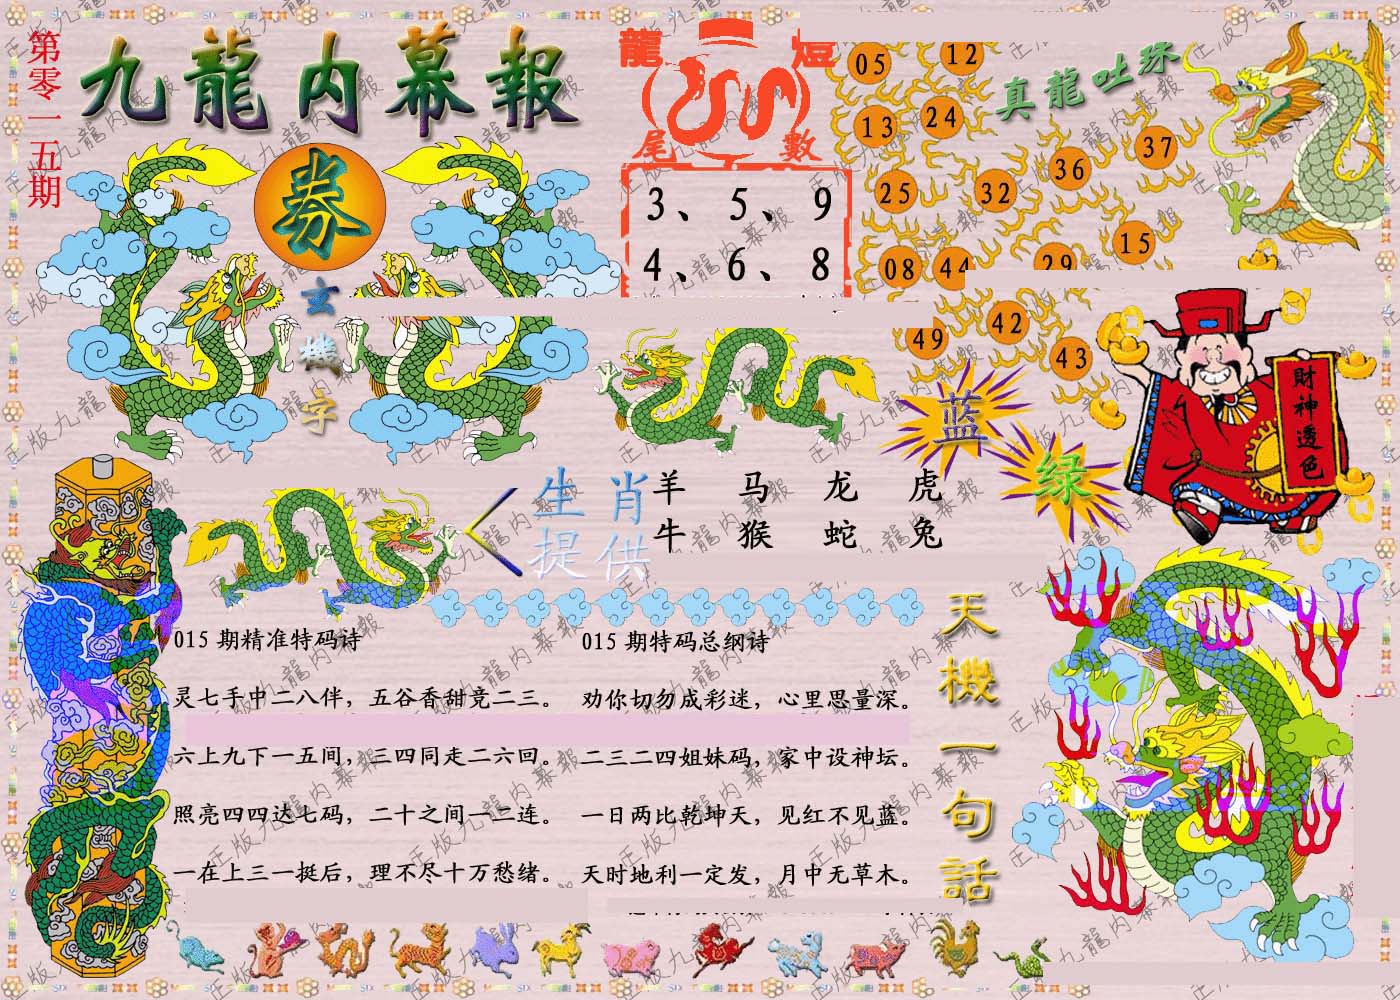 第零一五期
九龍内幕報
券
玄機字
龍燈
尾數
3、5、9
4、6、8
真龍吐珠
05 12
13 24
36 37
25 32
15
08 44 29
49 42 43
蓝
绿
財神透色
生肖
提供
羊 马 龙 虎
牛 猴 蛇 兔
015 期精准特码诗
灵七手中二八伴，五谷香甜竞二三。
六上九下一五间，三四同走二六回。
照亮四四达七码，二十之间一二连。
一在上三一挺后，理不尽十万愁绪。
015 期特码总纲诗
劝你切勿成彩迷，心里思量深。
二三二四姐妹码，家中设神坛。
一日两比乾坤天，见红不见蓝。
天时地利一定发，月中无草木。
天機一句話
正版九龍内幕報